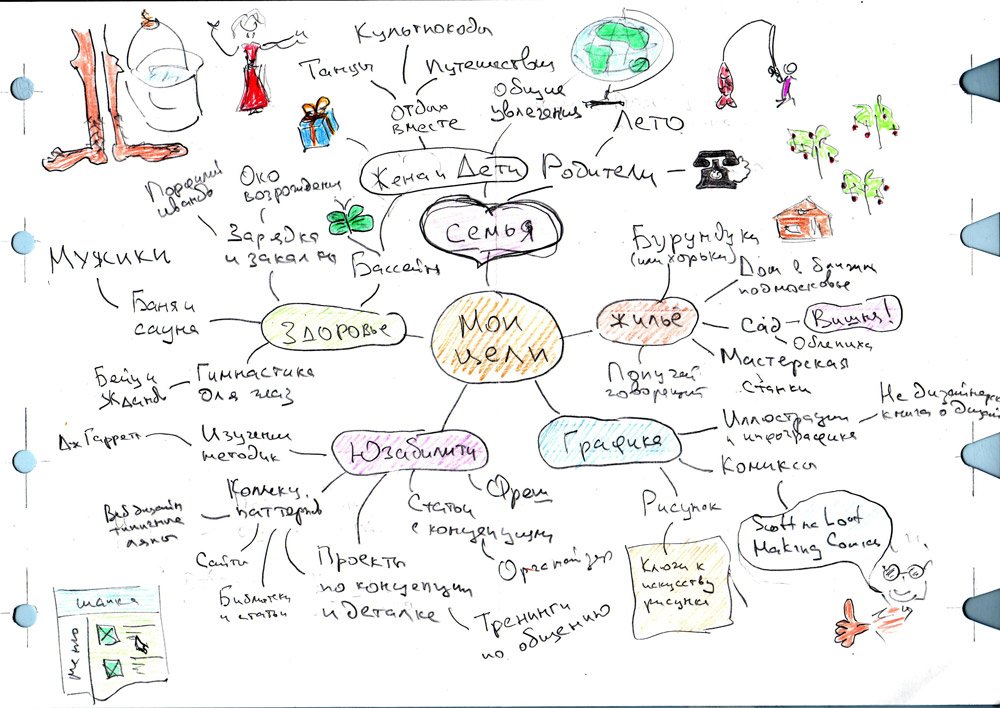 Культпоходы
Танцы
Путешествия
Отдых
вместе
Общие
увлечения
Лето
Жена и Дети
Родители
Семья
Порфирий
Иванов
Око
возрождения
Зарядка
и закалка
Бассейн
Мужики
Баня и
сауна
Здоровье
Гимнастика
для глаз
Бейц и
Жданов
Мои
цели
Бурундуки
(или хорьки)
Жильё
Дом в ближн
подмосковье
Сад
Вишня!
Облепиха
Мастерская
Станки
Попугай
говорящий
Графика
Иллюстрации
и инфографика
Не дизайнерск
книга о дизай
Комиксы
Scott Mc Loud
Making Comics
Рисунок
Ключи к
искусству
рисунка
Юзабилити
Изучении
методик
Дж Гарретт
Коллекц.
паттернов
Веб дизайн
типичные
ляпы
Сайты
Библиотеки
и статьи
Проекты
по концепции
и деталке
Статьи
с концепциями
Фреш
Органайзер
Тренинги
по общению
шапка
меню